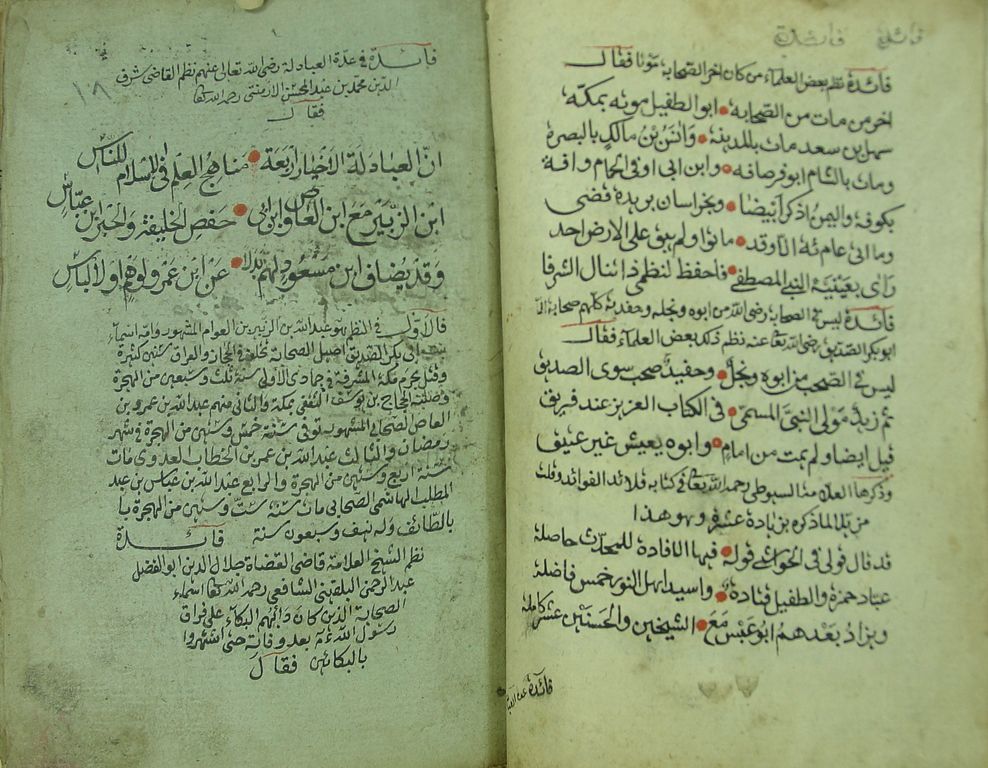 فائدة فائدة
فائدة نظم بعض العلماء من كان اخر الصحابة موتا فقال
اخر من مات من الصحابه ابو الطفيل موته بمكه
سهل بن سعد مات بالمدينه وانس بن مالك بالبصره
ومات بالشام ابو قرصافه وابن ابي اوفى الحمام وافه
بكوفة واليمن اذكر ابيضا وبخراسان بريدة قضى
وما الى عام مئة الا وقد ماتوا ولم يبق على الارض احد
راى بعينيه النبي المصطفى فاحفظ لنظم ذا تنال الشرفا
فائدة ليس في الصحابة رضي الله من ابوه ونجله وحفديه كلهم صحابة الا
ابو بكر الصديق رضي الله تعا عنه نظم ذلك بعض العلماء فقال
ليس في الصحب من ابوه ونجل وحفيد صحب سوى الصديق
ثم زيد مولى النبي المسمى في الكتاب العزيز عند فريق
قيل ايضا ولم يمت من امام وابوه يعيش غير عتيق
وذكرها العلامة السيوطي رحمه الله تعا في كتابه قلائد الفوائد وقلت
مذيلا لما ذكره بزيادة عشره وهو هذا
قد قال قولي في الحواشي قوله فيها الافادة للمحدث حاصله
عباد حمزة والطفيل قتادة واسيد اهل النور خمس فاضلة
ويزاد بعدهم ابو عبس مع الشيخين والحسنين عشر كامله
فائدة عدة العبادلة
١٨
فائدة في عدة العبادلة رضي الله تعالى عنهم نظم القاضي شرف
الدين محمد بن عبد المحسن الارمنتي رحمه الله تعا
فقال
ان العبادلة الاخيار اربعة مناهج العلم في الاسلام للناس
ابن الزبير مع ابن العاص وابن ابي حفص الخليفة والحبر بن عباس
وقد يضاف ابن مسعود لهم بدلا عن ابن عمرو لوهم او لالباس
فالاول في النظم هو عبد الله بن الزبير بن العوام المشهور وامه اسماء
بنت ابي بكر الصديق اصيل الصحابة تخلف في الحجاز والعراق سنين كثيرة
وقتل بحرم مكة المشرفة في جمادى الاولى سنة ثلث وسبعين من الهجرة
وصلبه الحجاج بن يوسف الثقفي بمكة والثاني منهم عبد الله بن عمرو بن
العاص الصحابي المشهور توفى سنة خمس وستين من الهجرة في شهر
رمضان والثالث عبد الله بن عمر بن الخطاب العدوي مات
سنة اربع وستين من الهجرة والرابع عبد الله بن عباس بن عبد
المطلب الهاشمي الصحابي مات سنة ست وستين من الهجرة
بالطائف وله نيف وسبعون سنة فائدة
نظم الشيخ العلامة قاضي القضاة جلال الدين ابو الفضل
عبد الرحمن البلقيني الشافعي رحمه الله تعا اسماء
الصحابة الذين كان دائهم البكاء على فراق
رسول الله بعد وفاته حتى اشتهروا
بالبكائين فقال